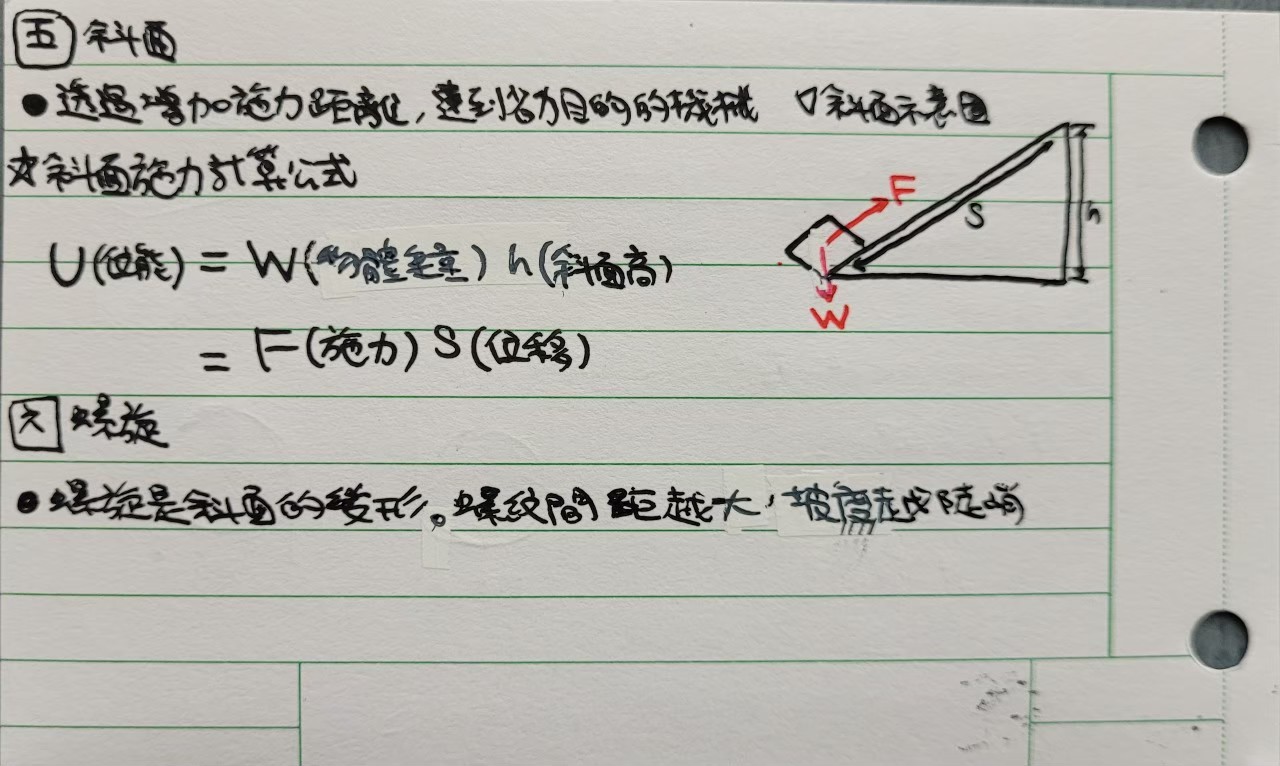 五 斜面
●透過增加施力距離,達到省力目的的機械 ▽斜面示意圖
☆斜面施力計算公式
F
S
h
U(位能) = W(物體重量) h(斜面高)
W
= F(施力) S(位移)
六 螺旋
●螺旋是斜面的變形。螺紋間距越大,坡度越陡峭